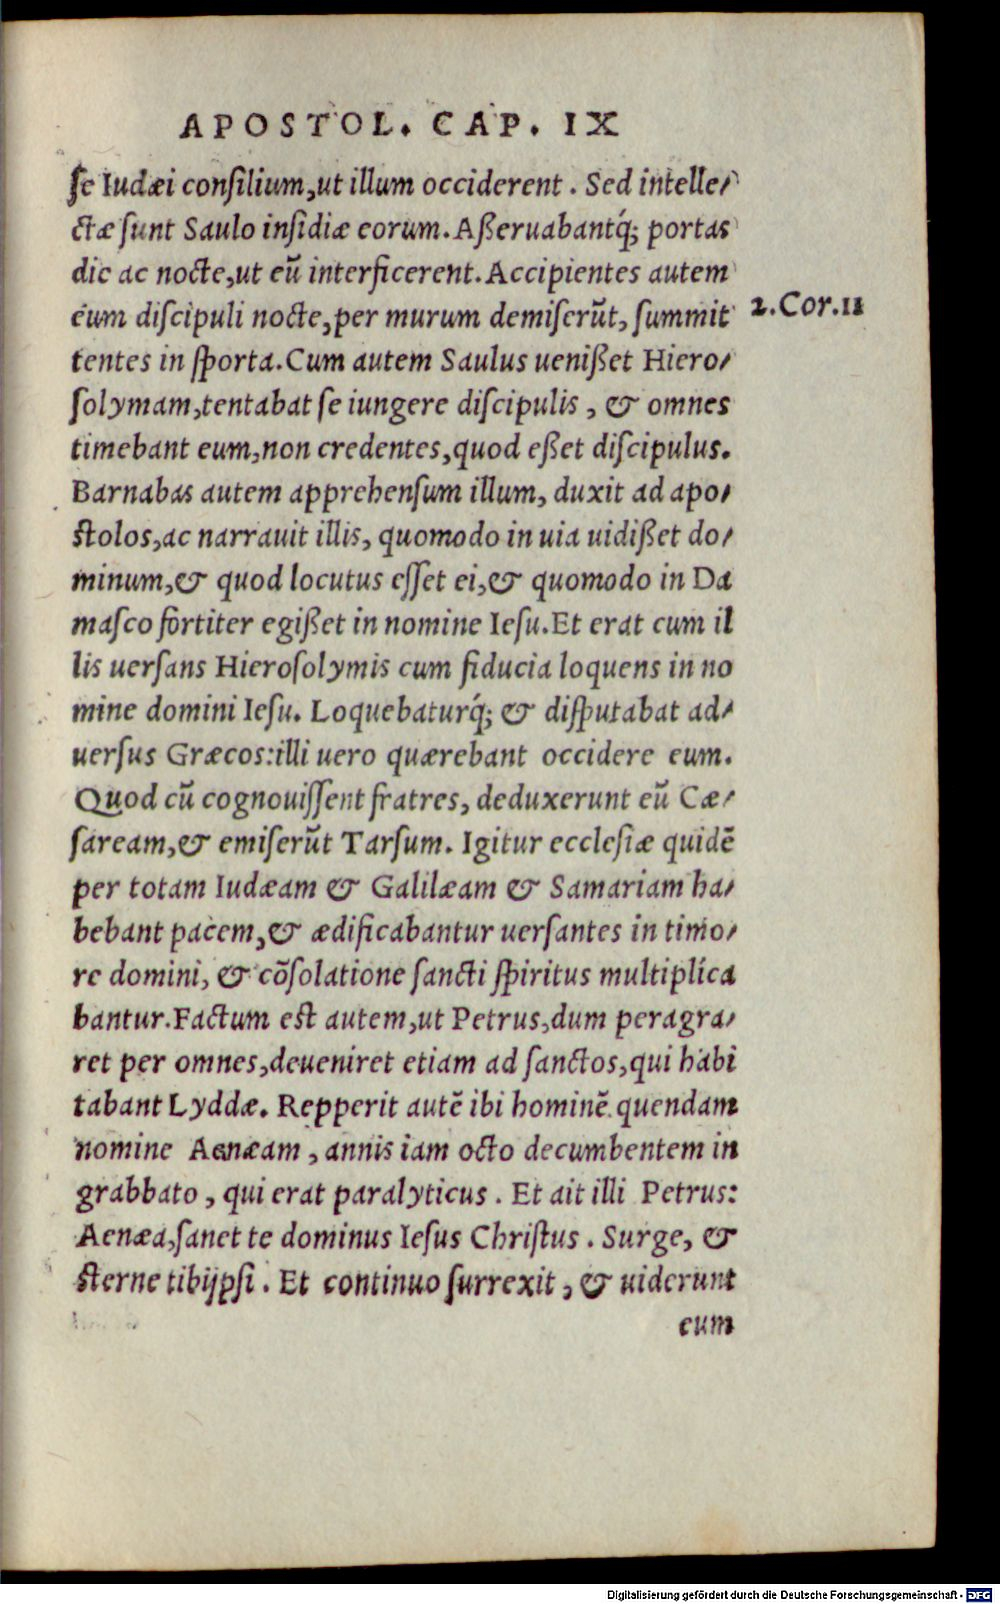 APOSTOL. CAP. IX
ſe Iudæi conſilium,ut illum occiderent . Sed intelle⸗
ctæ ſunt Saulo inſidiæ eorum. Aßeruabantq́; portas
die ac nocte,ut eū interficerent. Accipientes autem
eum diſcipuli nocte,per murum demiſerūt, ſummit
2.Cor.11
tentes in ſporta. Cum autem Saulus uenißet Hiero⸗
ſolymam,tentabat ſe iungere diſcipulis , & omnes
timebant eum,non credentes,quod eßet diſcipulus.
Barnabas autem apprehenſum illum, duxit ad apo⸗
ſtolos,ac narrauit illis, quomodo in uia uidißet do⸗
minum,& quod locutus eſſet ei,& quomodo in Da
maſco fortiter egißet in nomine Ieſu. Et erat cum il
lis uerſans Hieroſolymis cum fiducia loquens in no
mine domini Ieſu. Loquebaturq́; & diſputabat ad⸗
uerſus Græcos:illi uero quærebant occidere eum.
Quod cū cognouiſſent fratres, deduxerunt eū Cæ⸗
ſaream,& emiſerūt Tarſum. Igitur eccleſiæ quidē
per totam Iudæam & Galilæam & Samariam ha⸗
bebant pacem,& ædificabantur uerſantes in timo⸗
re domini, & cōſolatione ſancti ſpiritus multiplica
bantur. Factum est autem,ut Petrus,dum peragra⸗
ret per omnes,deueniret etiam ad ſanctos,qui habi
tabant Lyddæ. Repperit autē ibi hominē quendam
nomine Aenæam , annis iam octo decumbentem in
grabbato , qui erat paralyticus . Et ait illi Petrus:
Aenæa,ſanet te dominus Ieſus Chriſtus . Surge, &
ſterne tibijpſi . Et continuo ſurrexit , & uiderunt
eum
Digitalisierung gefördert durch die Deutsche Forschungsgemeinschaft - DFG